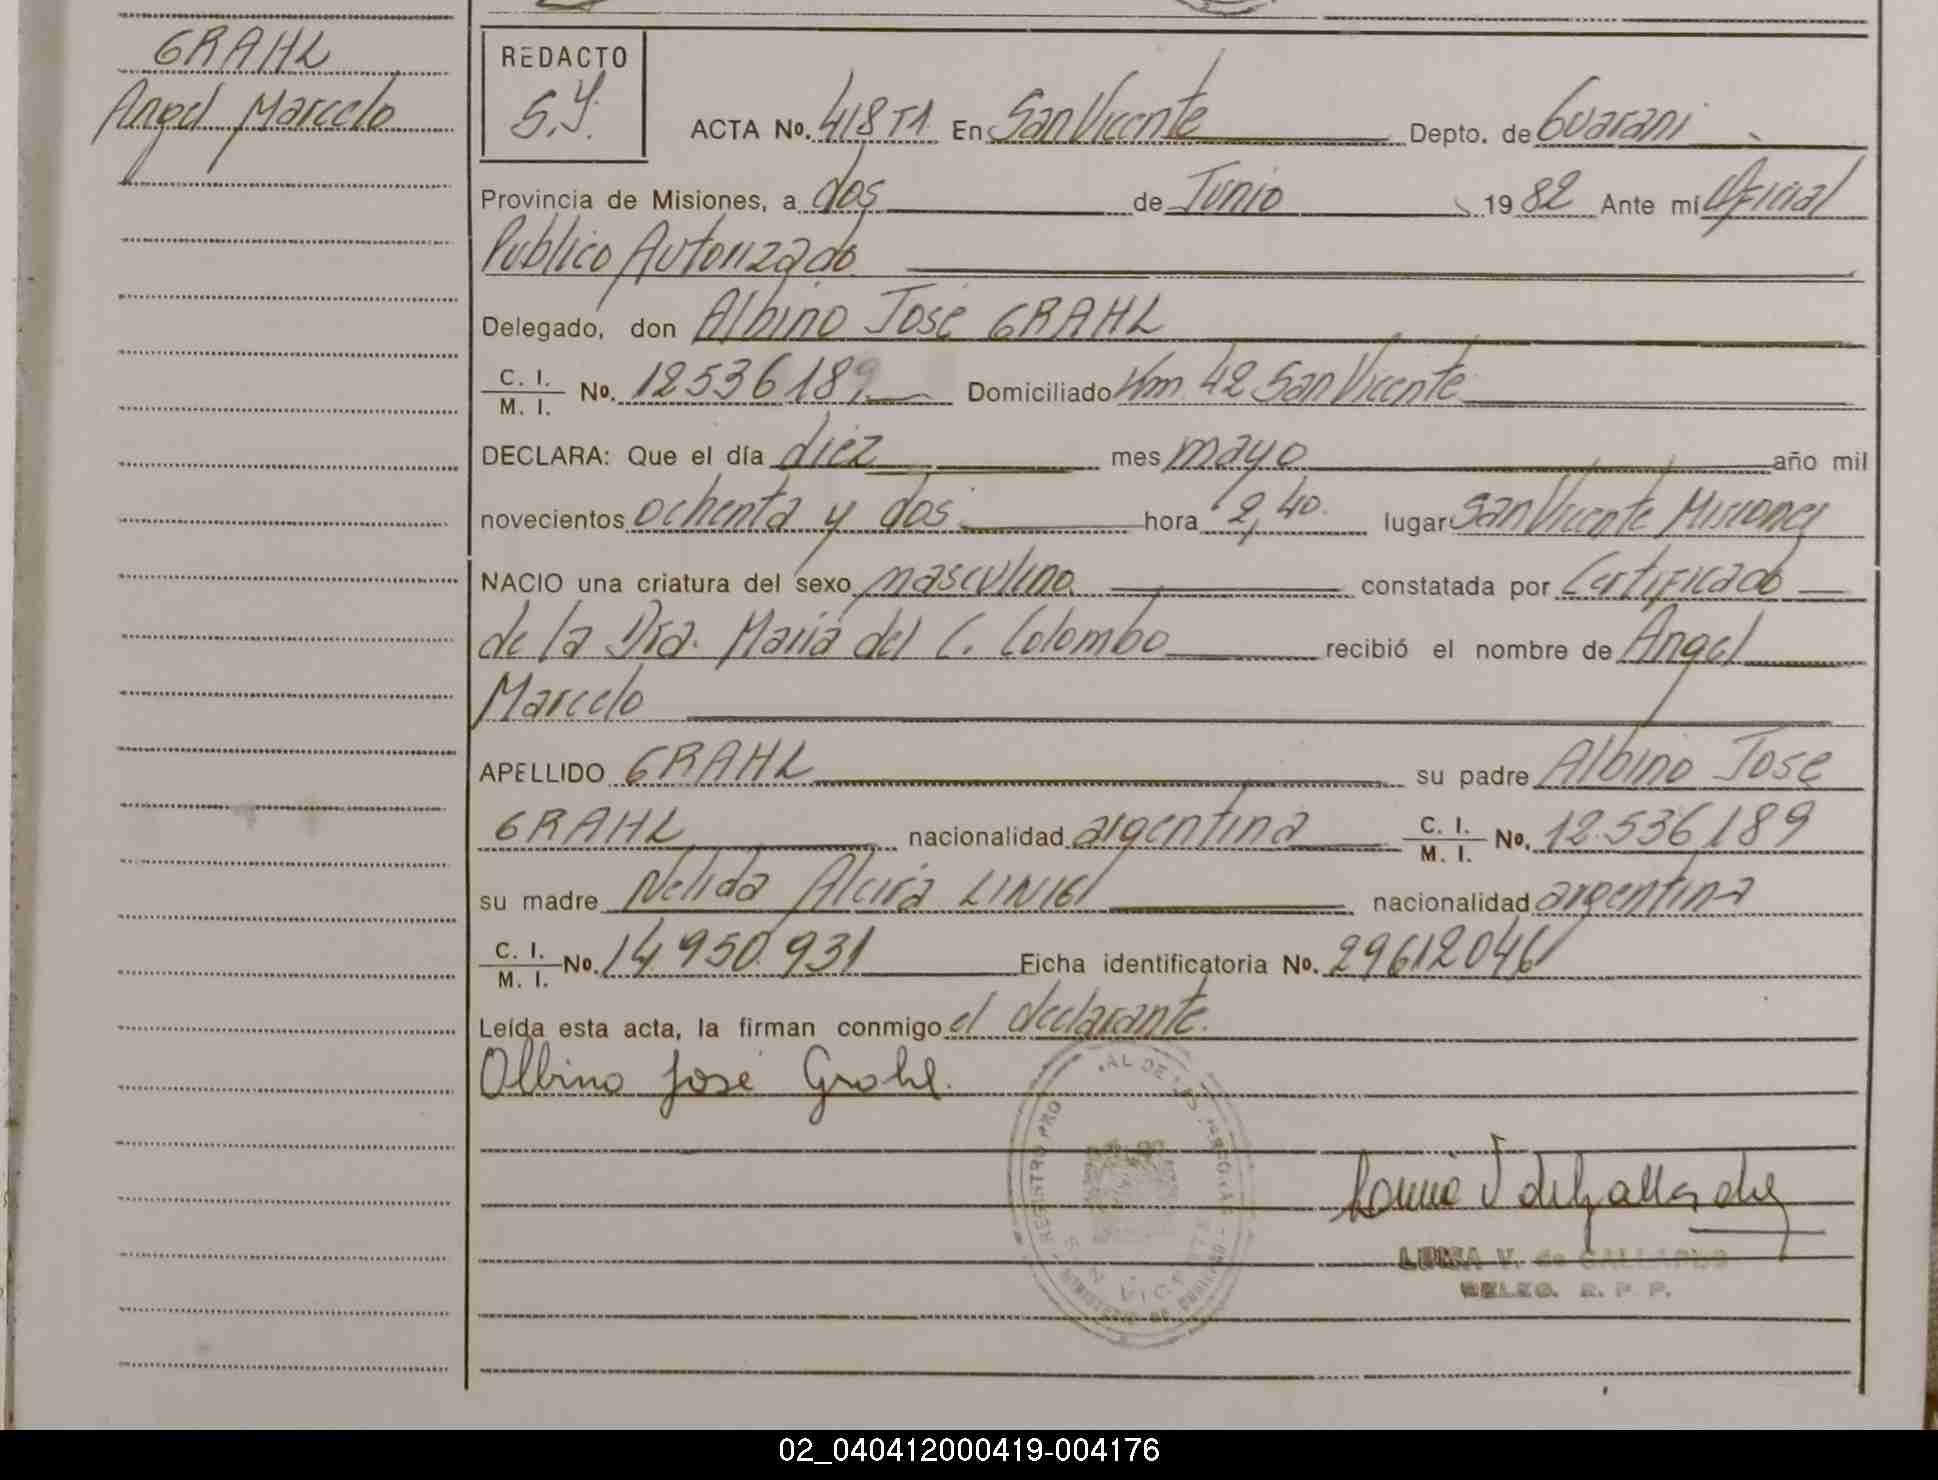 GRAHL
Angel Marcelo
REDACTO
S.Y.
ACTA No. 418 T1 En San Vicente Depto. de Guarani
Provincia de Misiones, a dos de Junio 1982 Ante mí Oficial
Publico Autorizado
Delegado, don Albino José GRAHL
C. I. M. I. No. 12536189 Domiciliado Km 42 San Vicente
DECLARA: Que el día diez mes mayo año mil
novecientos ochenta y dos hora 2,40. lugar San Vicente Misiones
NACIO una criatura del sexo masculino constatada por Certificado
de la Dra. Maria del C. Colombo recibió el nombre de Angel
Marcelo
APELLIDO GRAHL su padre Albino José
GRAHL nacionalidad argentina C. I. M. I. No. 12.536.189
su madre Nelida Alcira LINIGI nacionalidad argentina
C. I. M. I. No. 14.950.931 Ficha identificatoria No. 29612046
Leída esta acta, la firman conmigo el declarante.
Albino José Grahl.
LUISA V. de GALLARDO
DELEG. R. P. P.
02_040412000419-004176